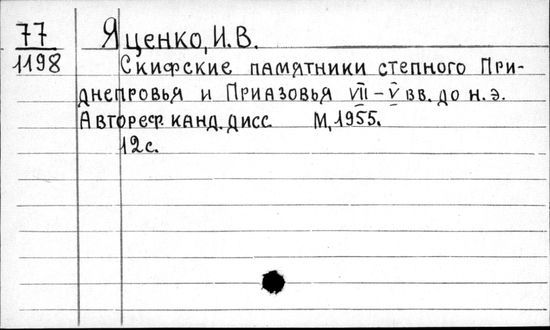 77 Яценко, И. В.
1198 Скифские памятники степного При-
днепровья и Приазовья VII-V вв. до н. э.
Автореф. канд. дисс. М, 1955.
12 с.